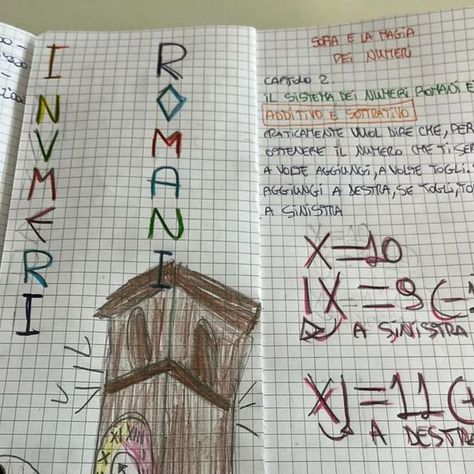 I NUMERI
ROMANI
XI XII I
SOFIA E LA MAGIA
DEI NUMERI
CAPITOLO 2
IL SISTEMA DEI NUMERI ROMANI E
ADDITIVO E SOTTRATIVO
PRATICAMENTE VUOL DIRE CHE, PER
OTTENERE IL NUMERO CHE TI SER
A VOLTE AGGIUNGI, A VOLTE TOGLI. S
AGGIUNGI A DESTRA, SE TOGLI, TO
A SINISTRA
X=10
IX=9 (-1
A SINISTRA
XI=11 (+
A DESTRA